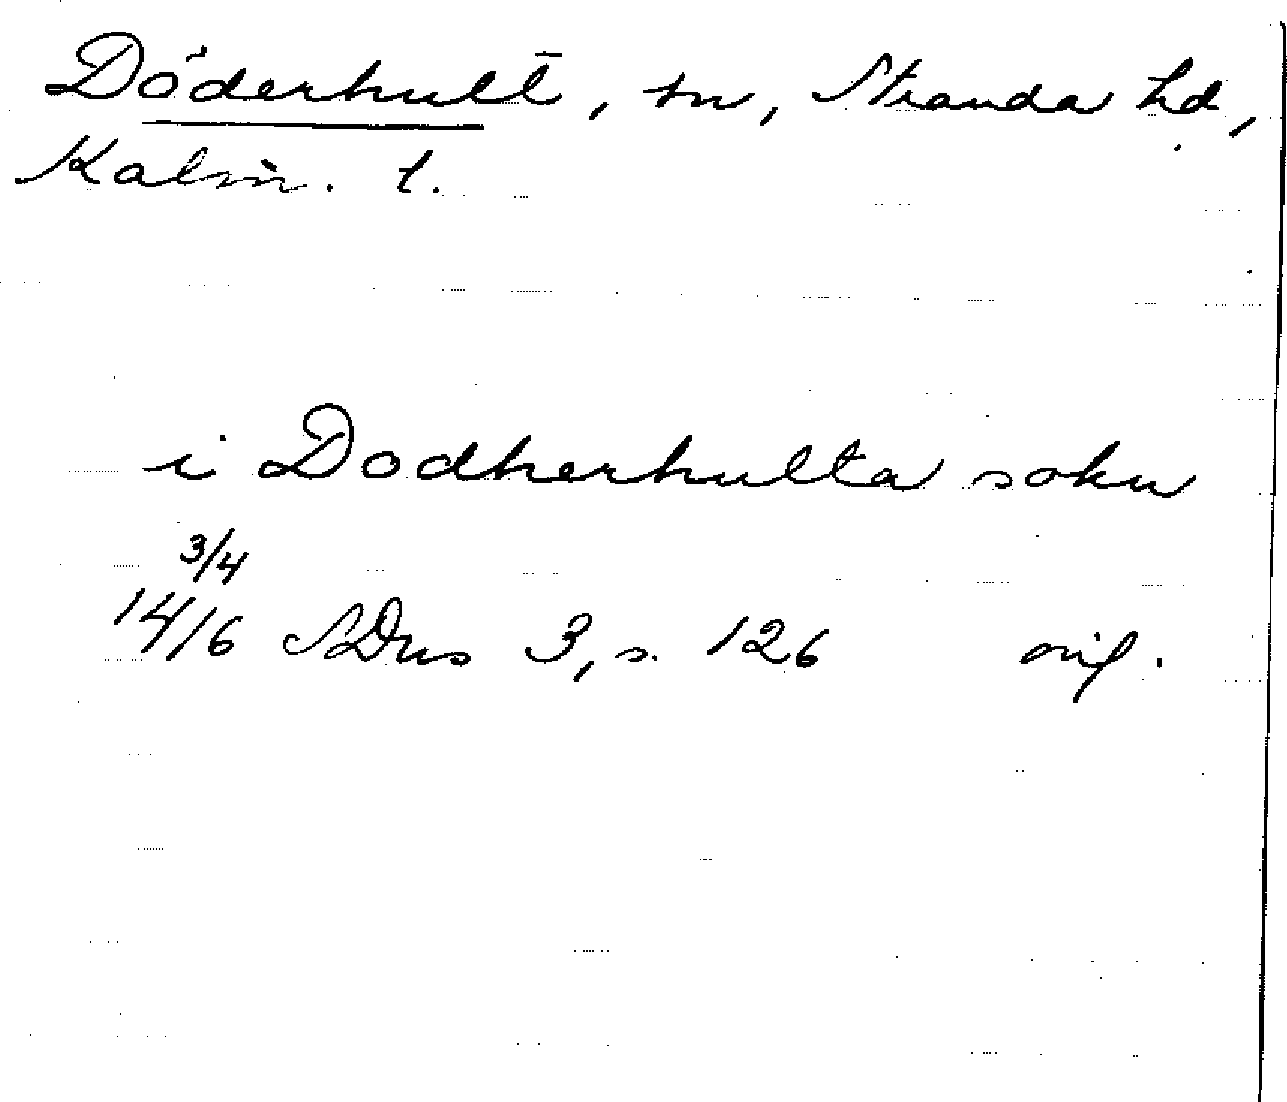 Döderhult, sn, Stranda hd,
Kalm. l.
i Dodherhulta sokn
3/4
14/6 SDns 3, s. 126 orig.